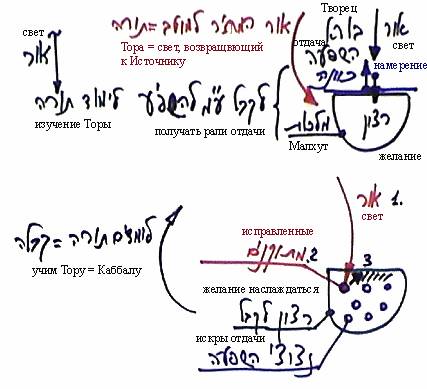 Творец
свет
אור
אור המחזיר למוטב = תורה
Тора = свет, возвращвющий
к Источнику
отдача
בורא
השפעה
כוונה
намерение
אור
свет
לימוד תורה
изучение Торы
לקבל ע"מ להשפיע
получать рали отдачи
מלכות
Малхут
רצון
желание
אור 1.
свет
исправленные
מתוקנים .2
3
לומדים תורה = קבלה
учим Тору = Каббалу
желание наслаждаться
רצון לקבל
искры отдачи
נצוצי השפעה